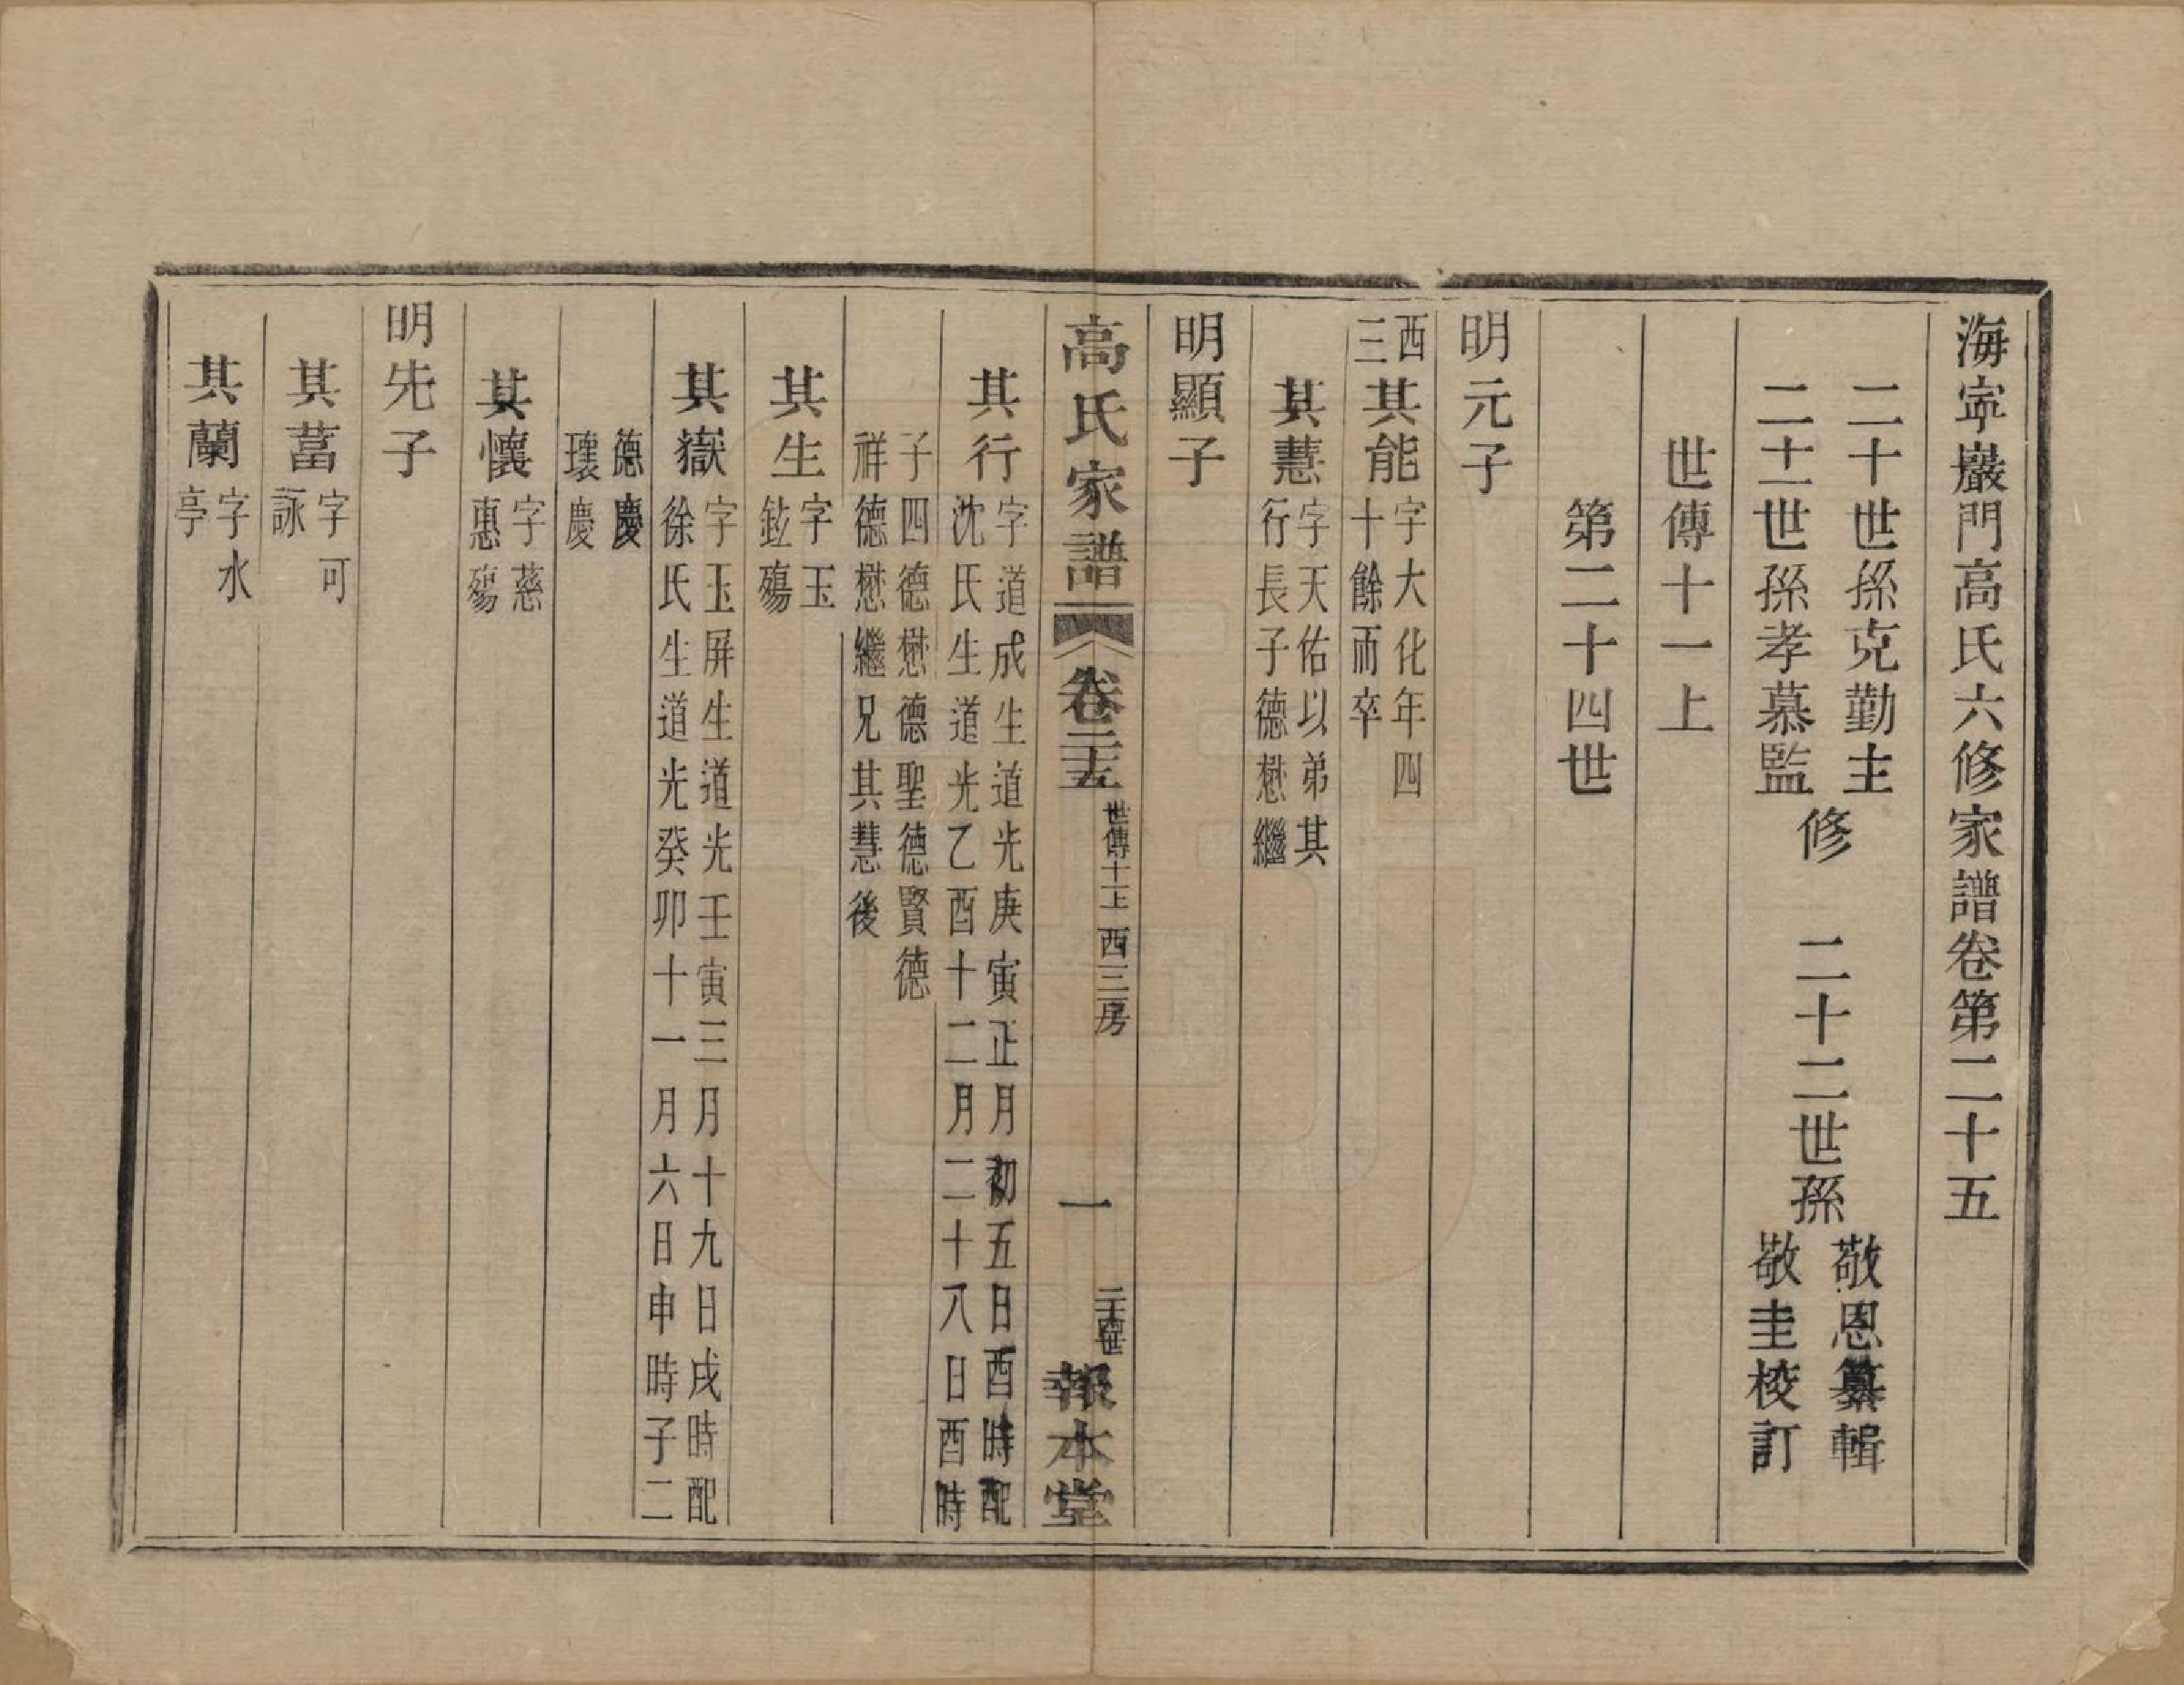 海寧巖門高氏六修家譜卷第二十五
二十世孫克勤主
二十一世孫孝慕監
修
二十二世孫
敬恩纂輯
敬圭校訂
世傳十一上
第二十四世
明元子
西三
其能
字大化年四
十餘而卒
其慧
字天佑以弟其
行長子德懋繼
明顯子
高氏家譜
卷二十五
世傳十一上 西三房
一
二十四世
報本堂
其行
字道成生道光庚寅正月初五日酉時配
沈氏生道光乙酉十二月二十八日酉時
子四德懋德聖德賢德
祥德懋繼兄其慧後
其生
字玉
鉉殤
其嶽
字玉屏生道光壬寅三月十九日戌時配
徐氏生道光癸卯十一月六日申時子二
德慶
瓌慶
其懷
字慈
惠殤
明先子
其菖
字可
詠
其蘭
字水
亭